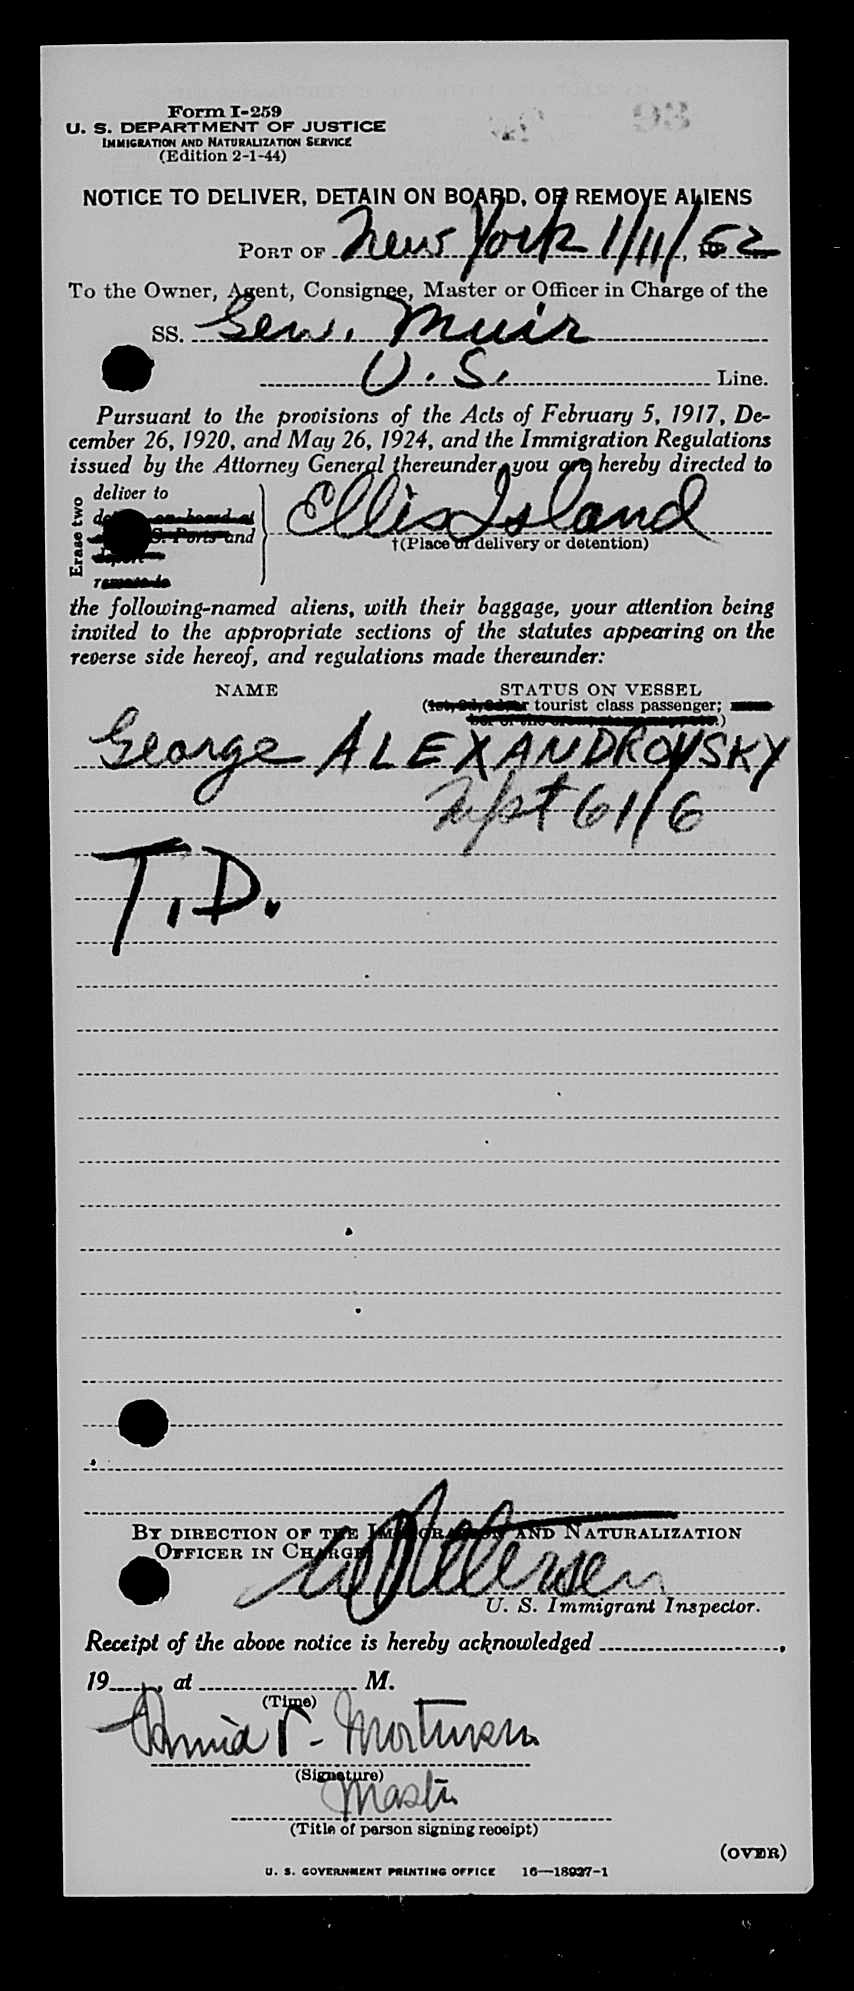 Form I-259
U. S. DEPARTMENT OF JUSTICE
IMMIGRATION AND NATURALIZATION SERVICE
(Edition 2-1-44)
NOTICE TO DELIVER, DETAIN ON BOARD, OR REMOVE ALIENS
PORT OF New York 1/11/, 52
To the Owner, Agent, Consignee, Master or Officer in Charge of the
SS. Gen. Muir
U.S. Line.
Pursuant to the provisions of the Acts of February 5, 1917, De-
cember 26, 1920, and May 26, 1924, and the Immigration Regulations
issued by the Attorney General thereunder, you are hereby directed to
Erase two
deliver to
on board at
S. Ports and
deport
remove to
Ellis Island
†(Place of delivery or detention)
the following-named aliens, with their baggage, your attention being
invited to the appropriate sections of the statutes appearing on the
reverse side hereof, and regulations made thereunder:
NAME STATUS ON VESSEL
(1st, 2d, 3d, or tourist class passenger;
George ALEXANDROVSKY
61/6
T.D.
BY DIRECTION OF THE IMMIGRATION AND NATURALIZATION
OFFICER IN CHARGE
Petersen
U. S. Immigrant Inspector.
Receipt of the above notice is hereby acknowledged ,
19 , at M.
(Time)
(Signature)
Master
(Title of person signing receipt)
(OVER)
U. S. GOVERNMENT PRINTING OFFICE 16—18927-1